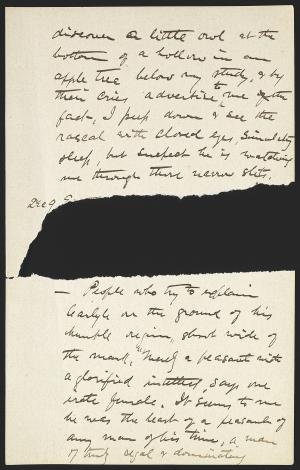 discover a little owl at the
bottom of a hollow in an
apple tree below my study, & by
their cries, advertise to me of the
fact, I peep down & see the
rascal with closed eyes, simulating
sleep, but suspect he is watching
me through those narrow slits.
Dec 9
— People who try to explain
Carlyle on the ground of his
humble origin, shoot wide of
the mark. "Merely a peasant with
a glorified intellect," says one
irate female. It seems to me
he was the least of a peasant of
any man of his time, a man
of truly regal & dominating